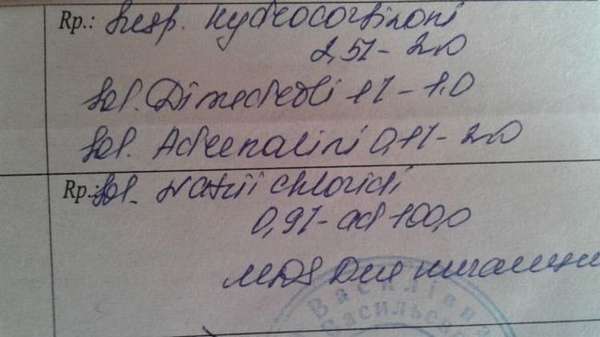 Rp.: Susp. Hydrocortisoni
2,5% - 2.0
Sol. Dimedroli 1% - 1.0
Sol. Adrenalini 0,1% - 2.0
Rp.: Sol. Natrii chloridi
0,9% - ad 100,0
MDS Для
Василівна
Васильев